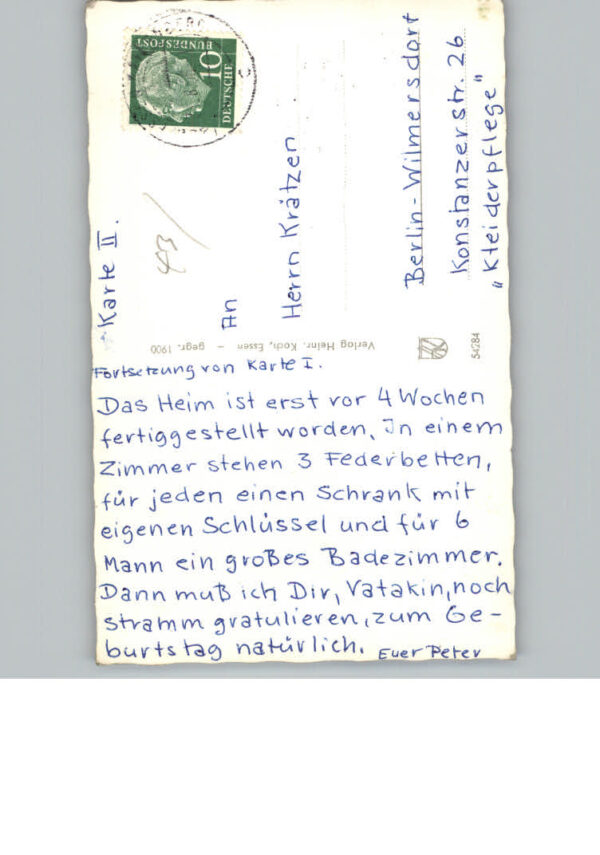 Karte II.
DEUTSCHE
BUNDESPOST
10
43/
An
Herrn Krätzen
Berlin-Wilmersdorf
Konstanzerstr. 26
"Kleiderpflege"
Verlag Heinr. Koch, Essen – gegr. 1900
54284
Fortsetzung von Karte I.
Das Heim ist erst vor 4 Wochen
fertiggestellt worden. In einem
Zimmer stehen 3 Federbetten,
für jeden einen Schrank mit
eigenen Schlüssel und für 6
Mann ein großes Badezimmer.
Dann muß ich Dir, Vatakin, noch
stramm gratulieren, zum Ge-
burtstag natürlich. Euer Peter